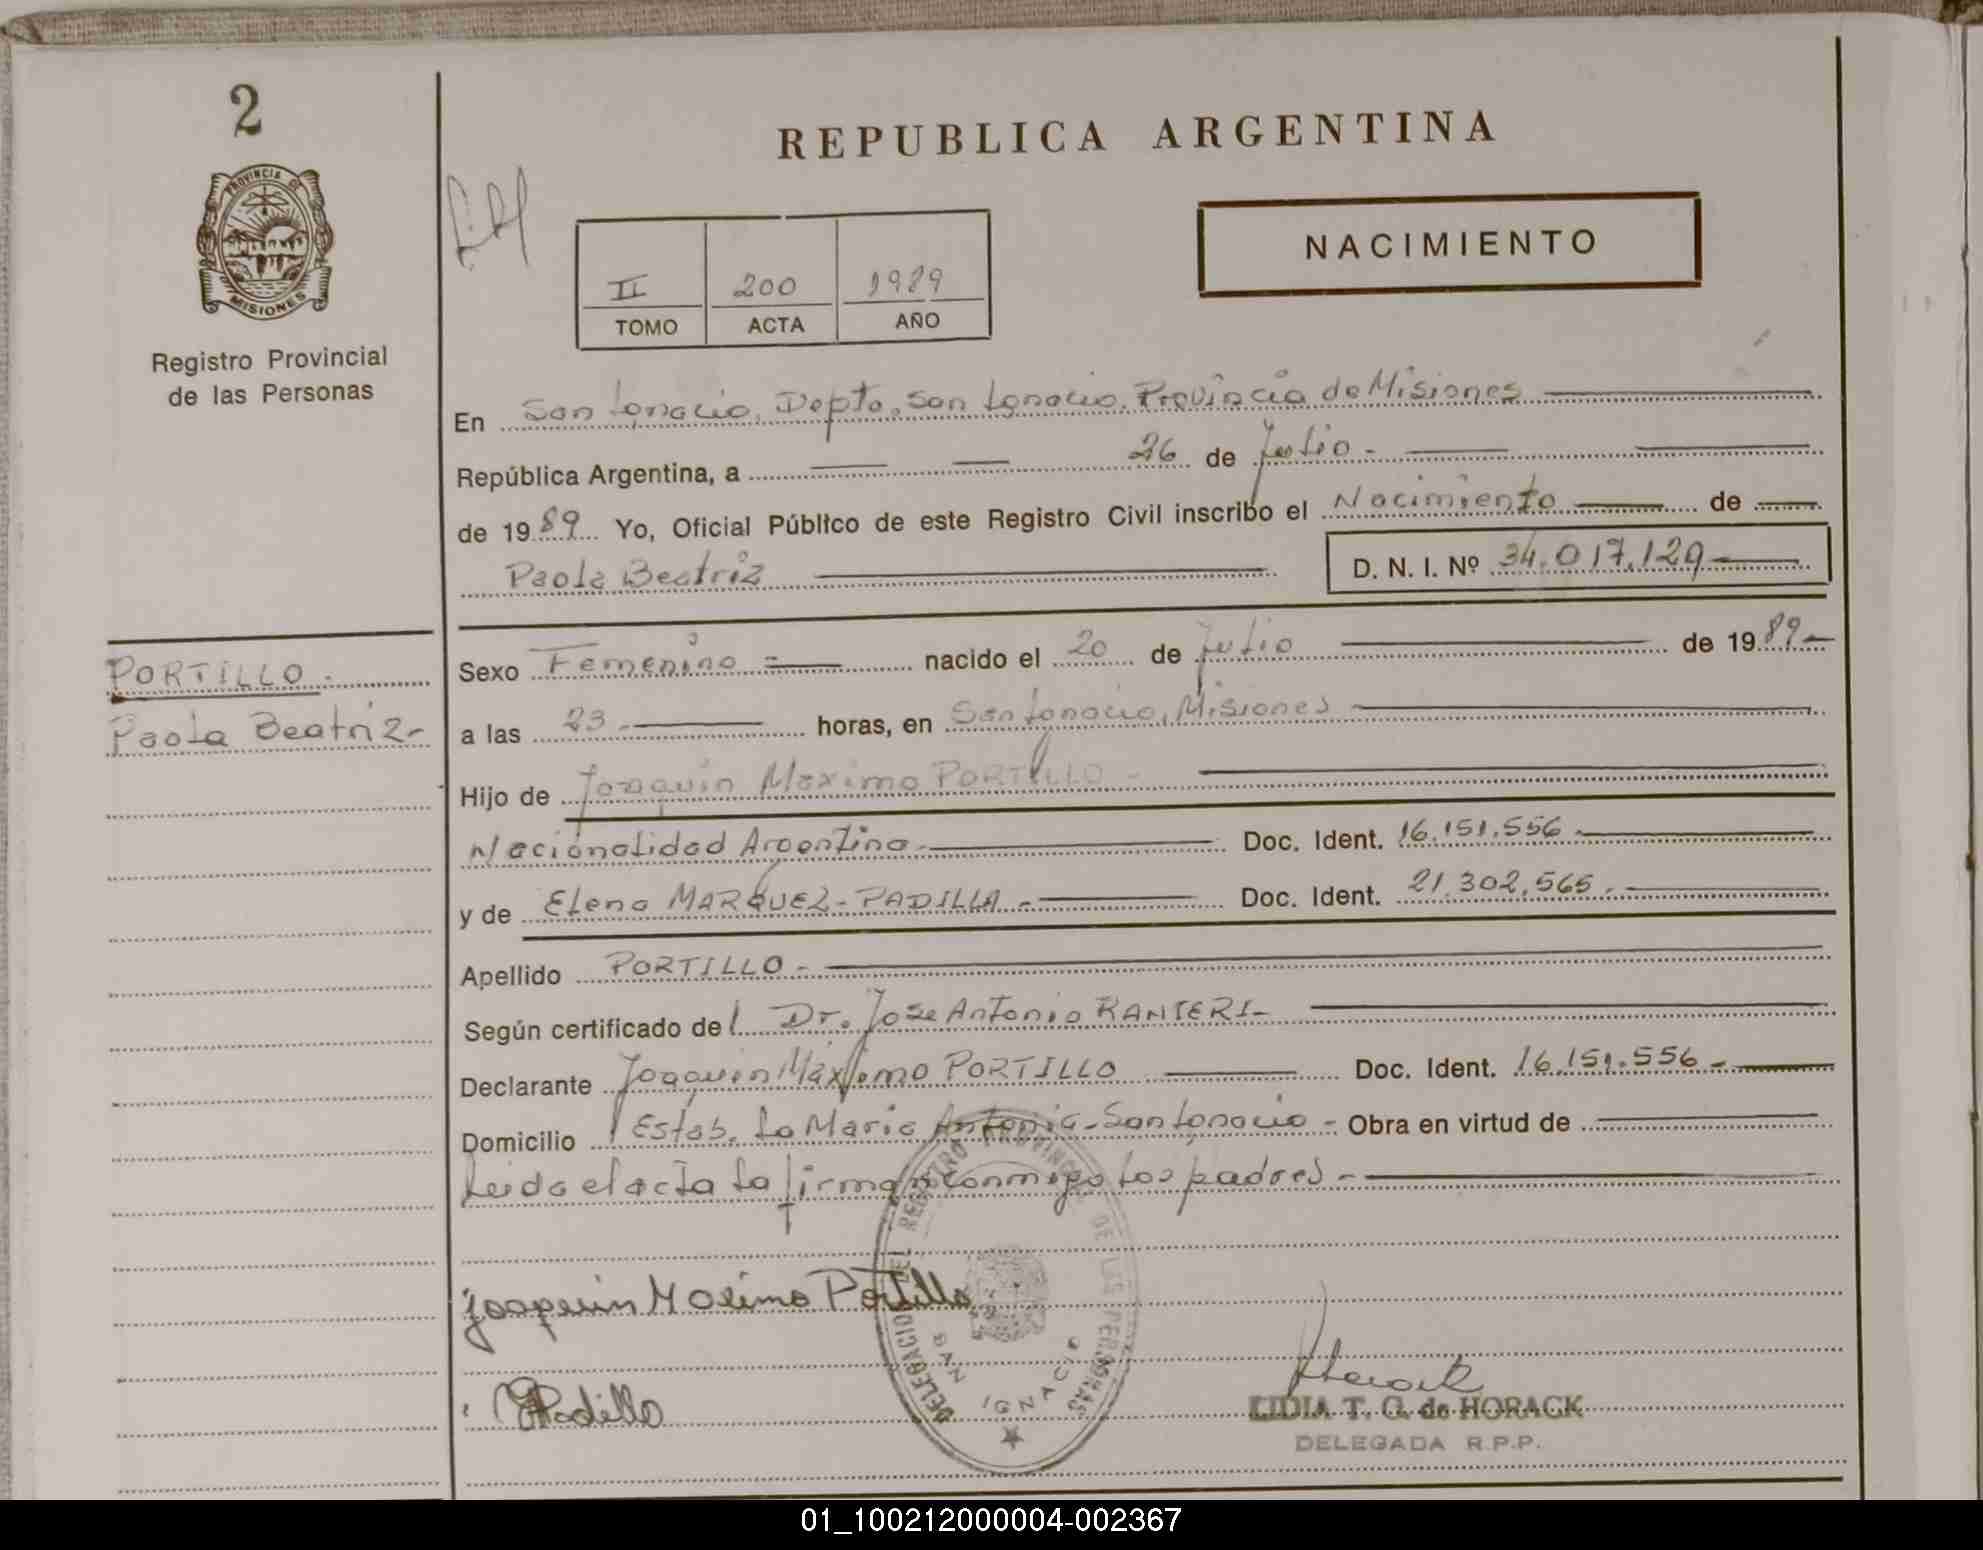 2
REPUBLICA ARGENTINA
PROVINCIA DE
MISIONES
Registro Provincial
de las Personas
NACIMIENTO
II 200 1989
TOMO ACTA AÑO
En San Ignacio, Depto. San Ignacio. Provincia de Misiones
República Argentina, a 26 de Julio.-
de 1989 Yo, Oficial Público de este Registro Civil inscribo el Nacimiento de
Paola Beatriz
D. N. I. Nº 34.017.129
PORTILLO.
Paola Beatriz-
Sexo Femenino nacido el 20 de Julio de 1989.-
a las 23.- horas, en San Ignacio, Misiones
Hijo de Joaquin Maximo PORTILLO -
Nacionalidad Argentina.- Doc. Ident. 16.151.556.-
y de Elena MARQUEZ-PADILLA.- Doc. Ident. 21.302.565.-
Apellido PORTILLO.-
Según certificado del Dr. Jose Antonio RANIERI-
Declarante Joaquin Máximo PORTILLO Doc. Ident. 16.151.556.-
Domicilio Estab. La Maria Antonia-San Ignacio - Obra en virtud de
Leida el acta la firman conmigo los padres.-
DELEGACION DEL REGISTRO PROVINCIAL DE LAS PERSONAS
SAN IGNACIO
Joaquin Maximo Portillo
EPadilla
Horack
LIDIA T. G. de HORACK
DELEGADA R.P.P.
01_100212000004-002367